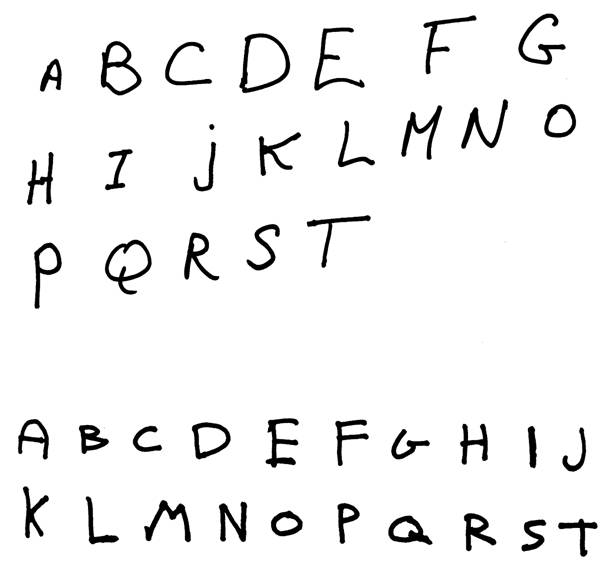 A B C D E F G
H I j K L M N O
P Q R S T
A B C D E F G H I J
K L M N O P Q R S T